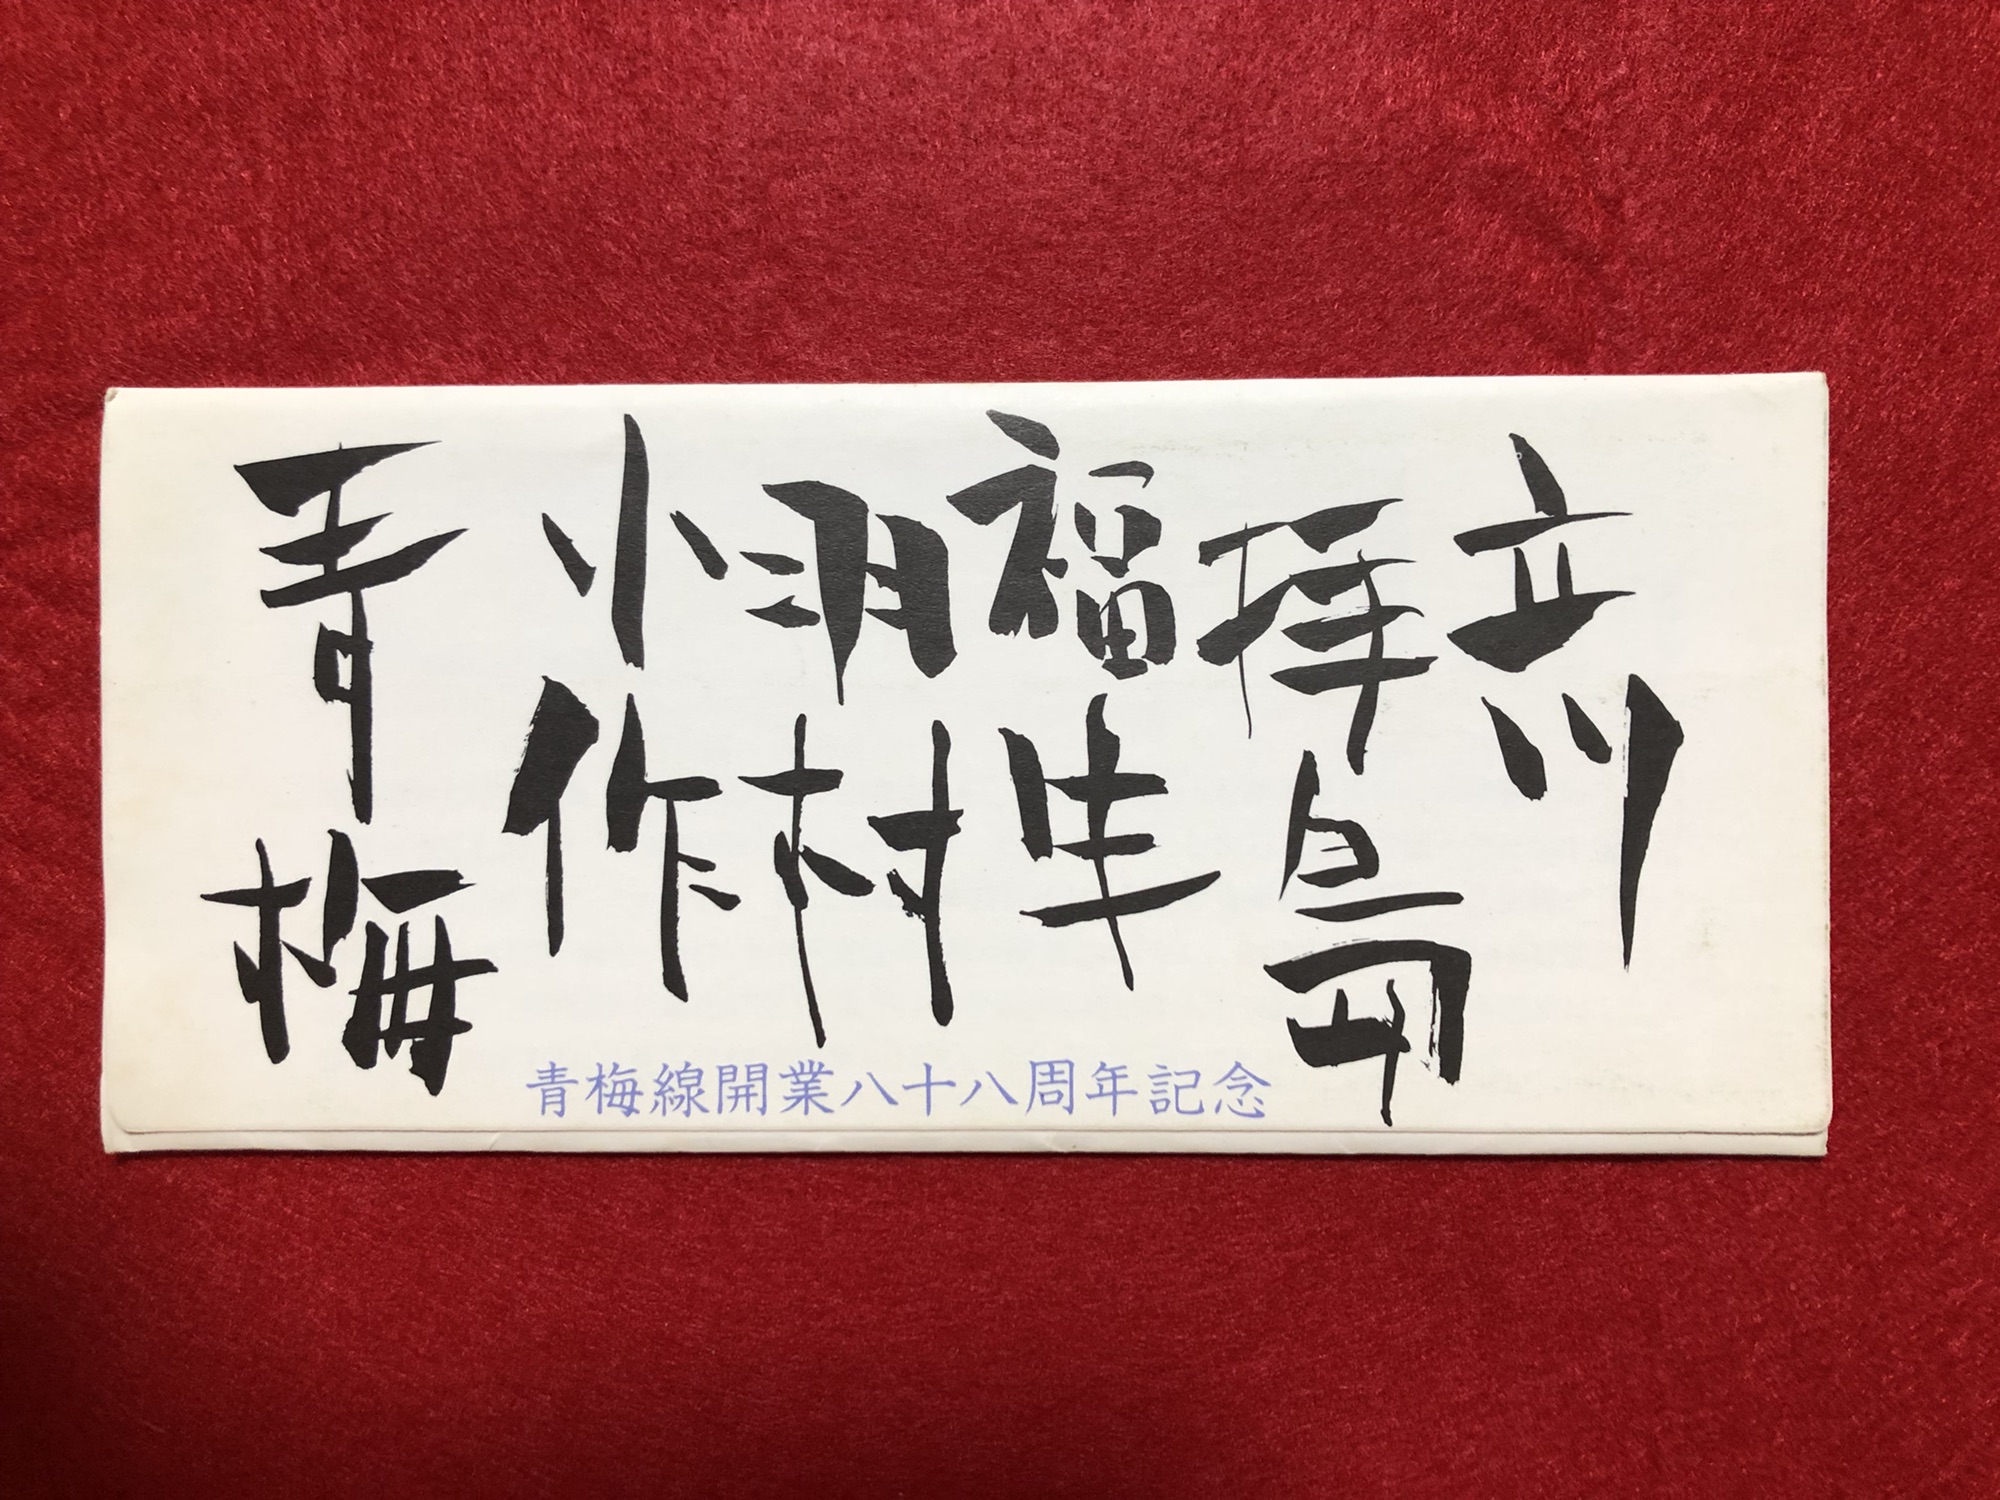 立川
拝島
福生
羽村
小作
青梅
青梅線開業八十八周年記念